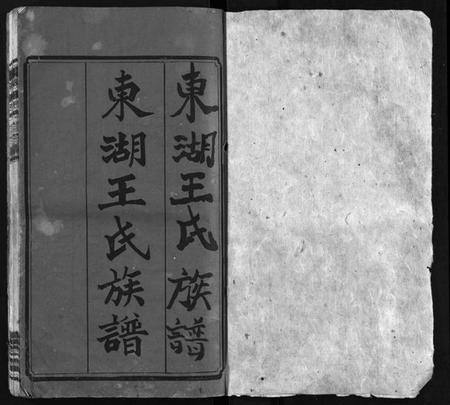 東湖王氏族譜
東湖王氏族譜